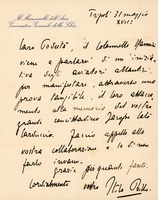 Il Maresciallo dell'Aria
Governatore Generale della Libia
Tripoli 31 maggio
XVII
Caro Povoto, il colonnello
viene a parlarvi di un'inizia-
tiva degli aviatori atlantici,
per manifestare, attraverso una
prova tangibile, il loro attacca-
mento alla memoria del vostro
grande concittadino Jacopo
Faccio appello alla
vostra collaborazione e so di non
farlo invano.
grazie fin quando fante.
Cordialmente vostro Italo Balbo